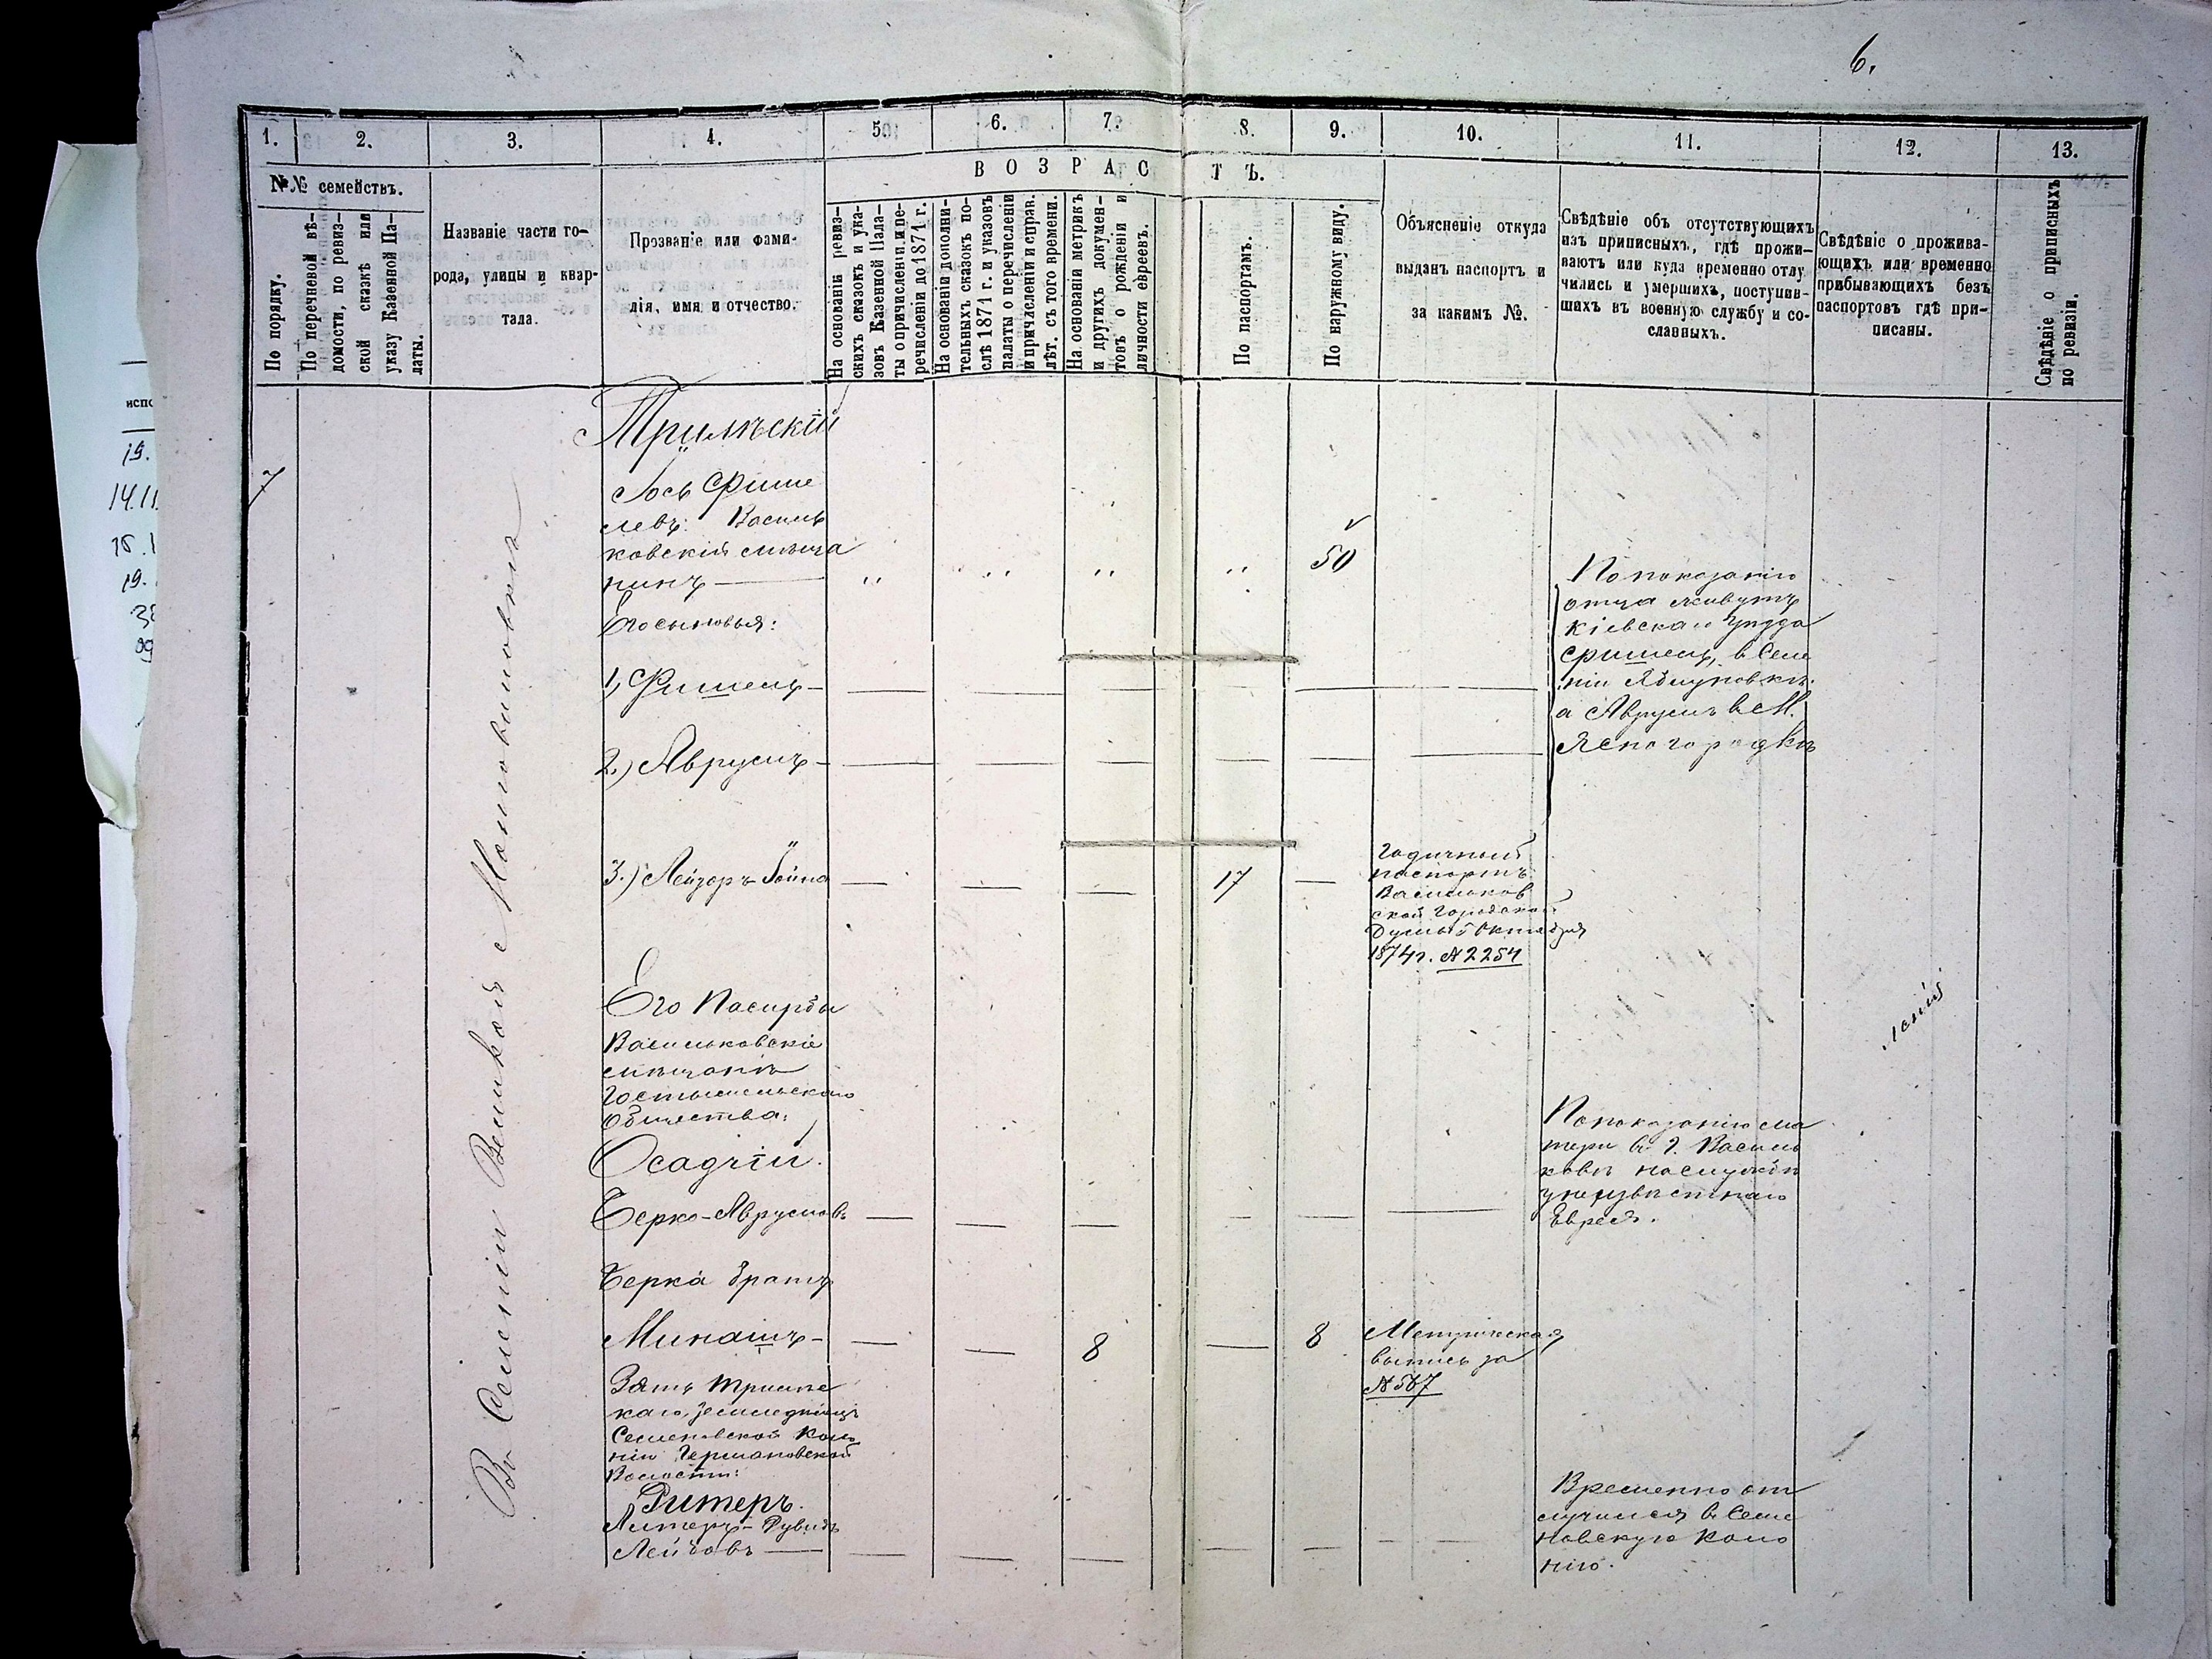 6.
1.
2.
3.
4.
5.
6.
7.
8.
9.
10.
11.
12.
13.
№№ семействъ.
По порядку.
По перечневой вѣ-
домости, по ревиз-
ской сказкѣ или
указу Казенной Па-
латы.
Названіе части го-
рода, улицы и квар-
тала.
Прозваніе или фами-
лія, имя и отчество.
ВОЗРАСТЪ.
На основаніи ревиз-
скихъ сказокъ и ука-
зовъ Казенной Пала-
ты о причисленіи и пе-
речисленіи до 1871 г.
На основаніи дополни-
тельныхъ сказокъ по-
слѣ 1871 г. и указовъ
палаты о перечисленіи
и причисленіи и справ.
лѣт. съ того времени.
На основаніи метрикъ
и другихъ докумен-
товъ о рожденіи и
личности евреевъ.
По паспортамъ.
По наружному виду.
Объясненіе откуда
выданъ паспортъ и
за какимъ №.
Свѣдѣніе объ отсутствующихъ
изъ приписныхъ, гдѣ прожи-
ваютъ или куда временно отлу
чились и умершихъ, поступив-
шихъ въ военную службу и со-
сланныхъ.
Свѣдѣніе о прожива-
ющихъ или временно
прибывающихъ безъ
паспортовъ гдѣ при-
писаны.
Свѣдѣніе о приписныхъ
по ревизіи.
7
Въ Селеніи Великой
Трилѣскій
Іось Фише
левъ: Василь
ковскій мѣща
нинъ —
50
Его сыновья:
1, Фишель —
2.) Аврумъ —
По показанію
отца живутъ
Кіевскаго уѣзда
Фишель, въ Селе
ніи Яблуновкѣ.
а Аврумъ в М.
Ясногородкѣ
3.) Лейзоръ
17
Годичный
паспортъ
Васильков
ской Городской
Думы 5 Октября
1874 г. № 2254
Его Пасирбы
Васильковскіе
мѣщане
Общества:
Осадчій.
Берко-Аврумовъ
По показанію ма
тери въ г. Василь
ковѣ на службѣ
у неизвѣстнаго
Еврея.
Берка братъ
Минашъ —
8
8
Метрическая
выпись за
№ 567
Зять Трилѣс
каго, земледѣлецъ
Семеновской Коло
ніи Германовской
Волости:
Ритеръ.
Рувинъ
Лейбовъ —
Временно от
лучился в Семе
новскую Коло
нію.
испо
19.
14.11
15.1
19.